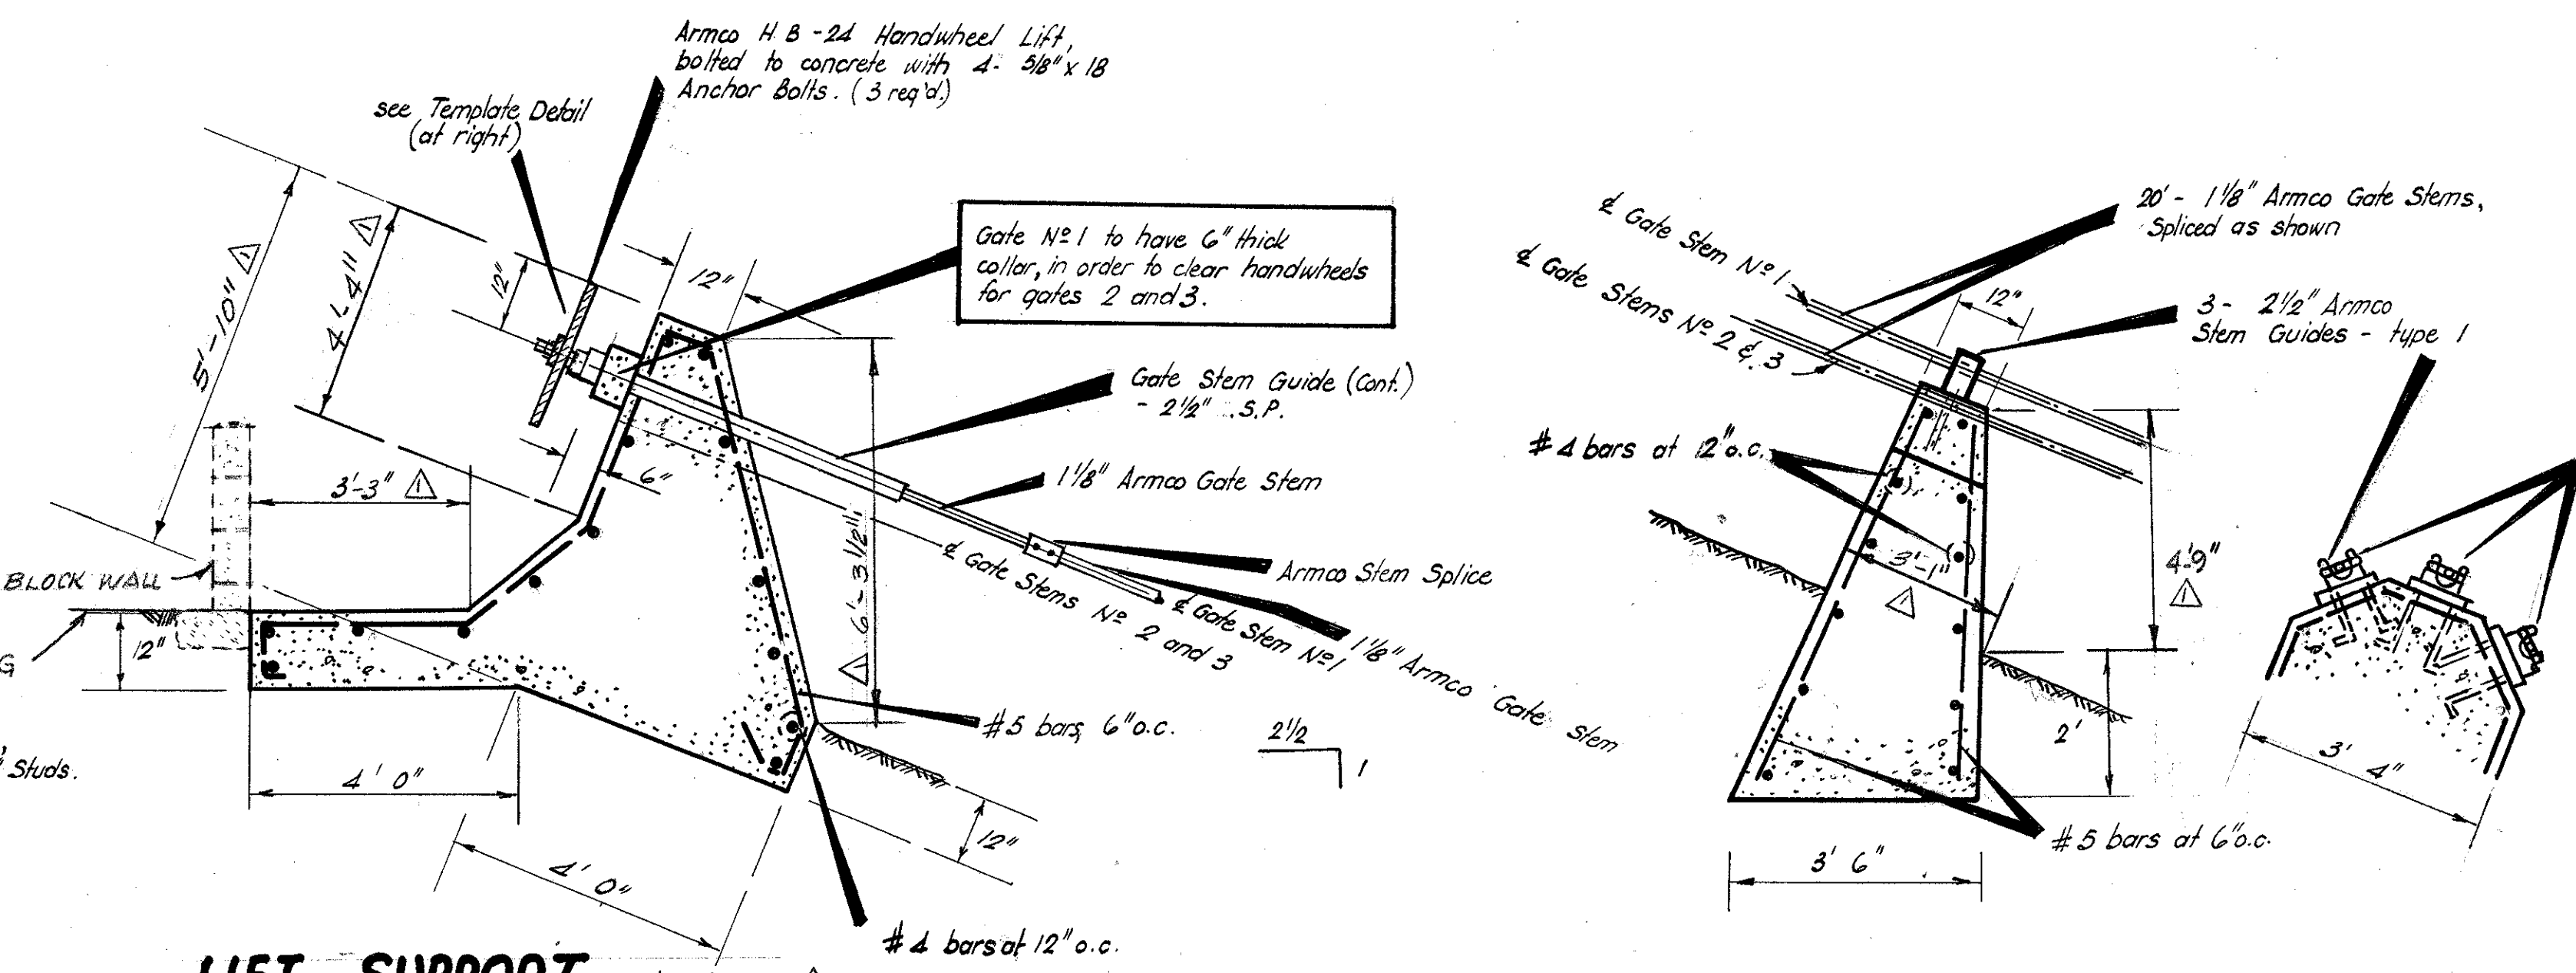 Armco H.B-24 Handwheel Lift,
bolted to concrete with 4- 5/8" x 18
Anchor Bolts. (3 req'd.)
see Template Detail
(at right)
Gate Nº1 to have 6" thick
collar, in order to clear handwheels
for gates 2 and 3.
5'-10" 1
4'-4" 1
12"
12"
Gate Stem Guide (Cont.)
- 2½" S.P.
1⅛" Armco Gate Stem
6"
3'-3" 1
BLOCK WALL
12"
G
Studs.
4' 0"
4' 0"
1 6'-3½"
Armco Stem Splice
℄ Gate Stems Nº 2 and 3
℄ Gate Stem Nº1
1⅛" Armco Gate Stem
#5 bars, 6" o.c.
12"
#4 bars at 12" o.c.
2½
1
LIFT SUPPORT
℄ Gate Stem Nº1
℄ Gate Stems Nº 2 & 3
20' - 1⅛" Armco Gate Stems,
Spliced as shown
12"
3- 2½" Armco
Stem Guides - type 1
#4 bars at 12" o.c.
3'-1"
1
4'-9"
1
2'
#5 bars at 6" o.c.
3' 6"
3' 4"